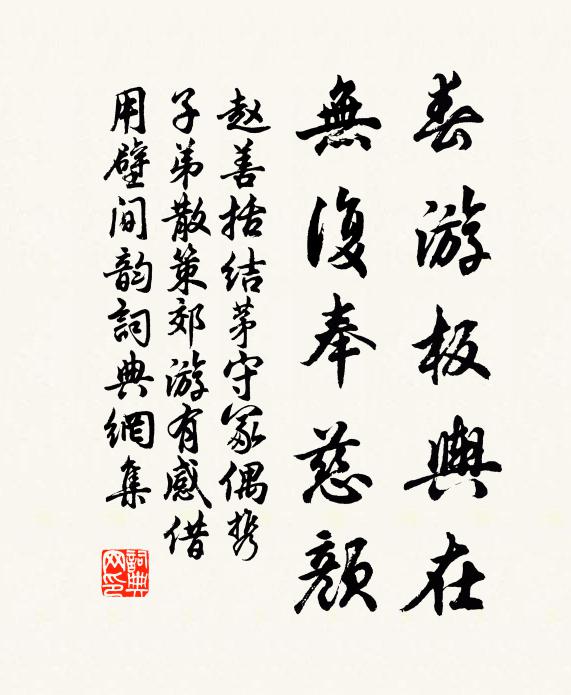 春游板輿在
無復奉慈顔
赵善括结茅守冢偶携
子弟散策郊游有感借
用壁间韵詞典網集
詞典
网印